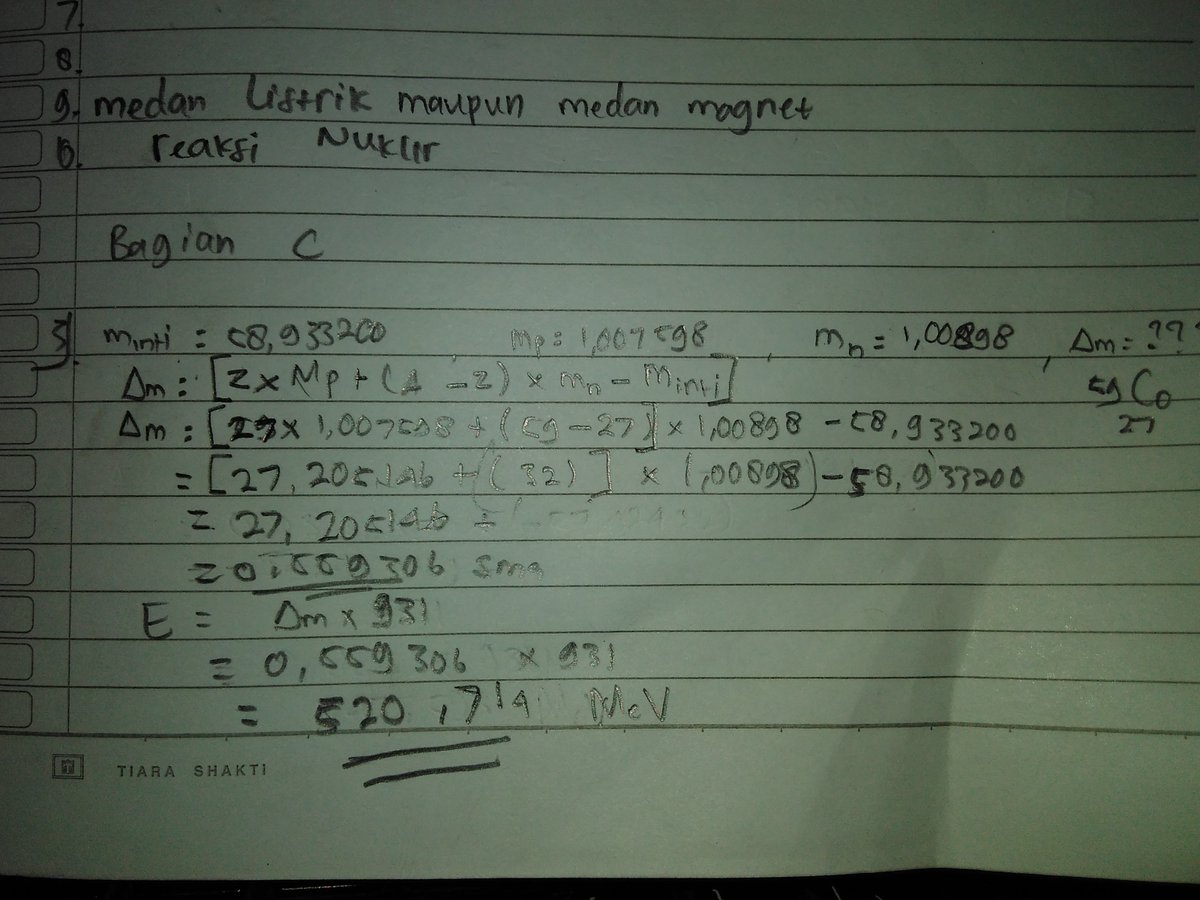 7.
8.
9. medan listrik maupun medan magnet
10. reaksi Nuklir
Bagian C
3] minti = 58,933200 , mp = 1,007598 , mn = 1,00898 , Δm = ???
Δm = [Z x Mp + (A - Z) x mn - Minti] 59 Co 27
Δm = [27 x 1,007598 + (59-27)] x 1,00898 - 58,933200
= [27,205146 + (32)] x 1,00898) - 58,933200
= 27,205146 +
= 0,559306 sma
E = Δm x 931
= 0,559306 x 931
= 520,714 MeV
TIARA SHAKTI